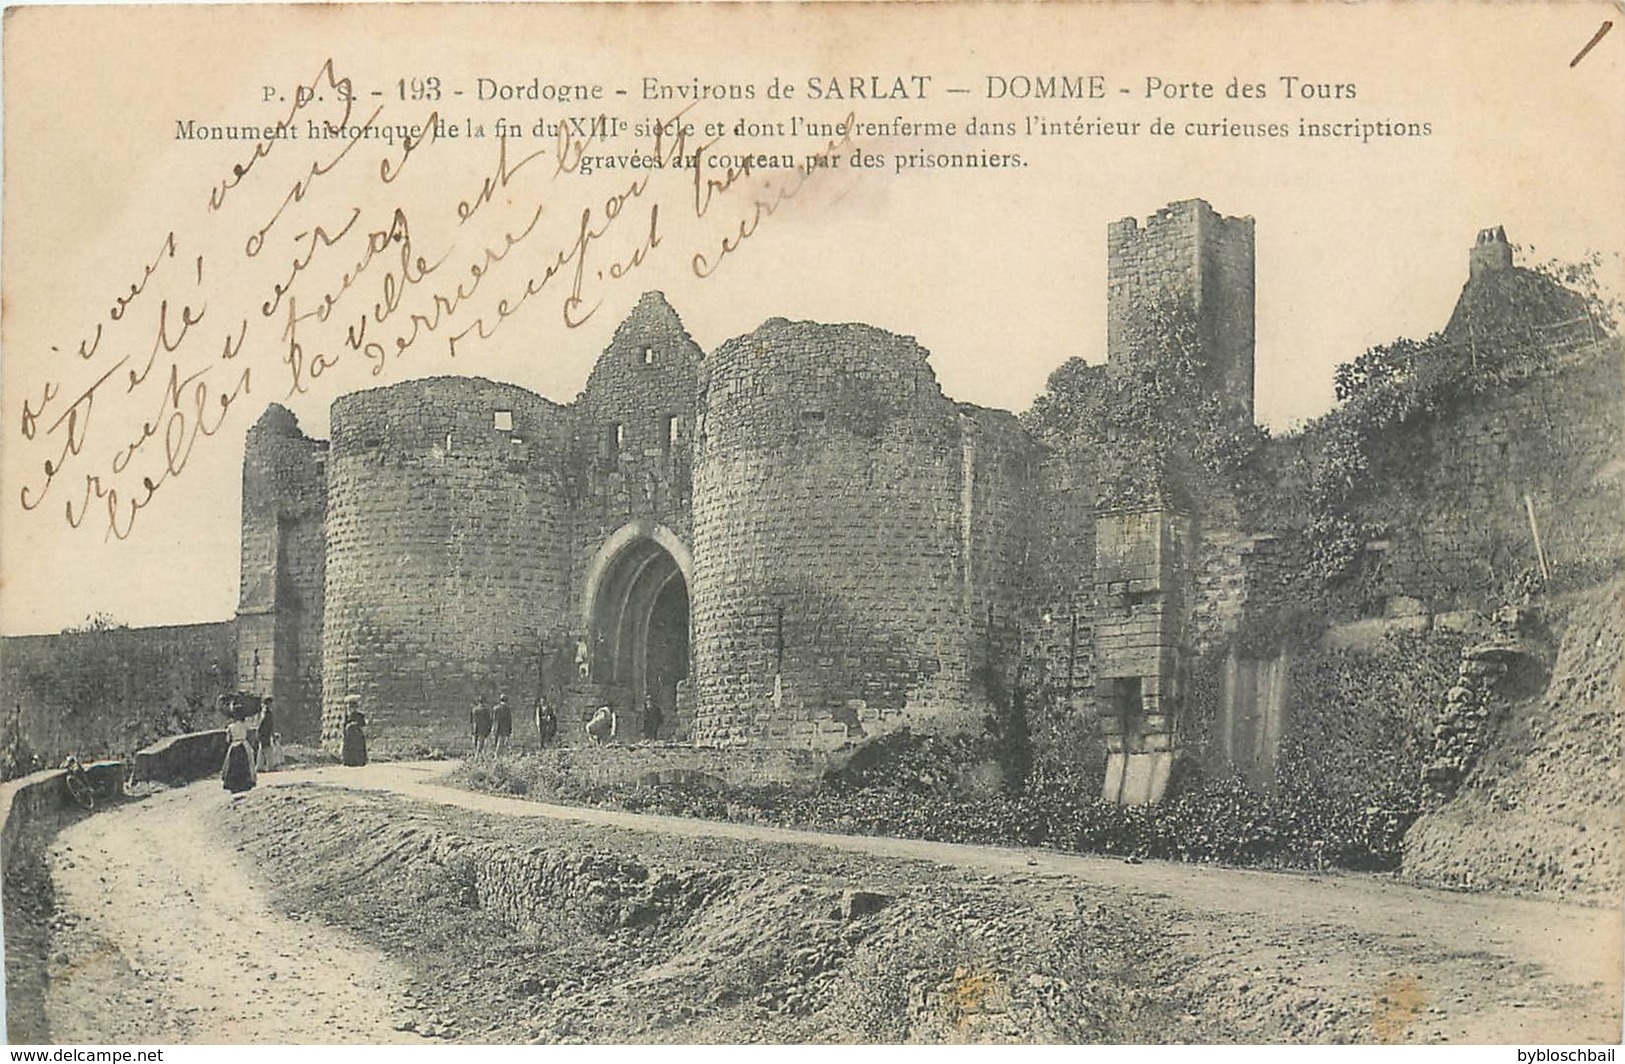 P. D. S. - 193 - Dordogne - Environs de SARLAT — DOMME - Porte des Tours
Monument historique de la fin du XIIIe siècle et dont l'une renferme dans l'intérieur de curieuses inscriptions
gravées au couteau par des prisonniers.
si vous venez
cet été, on
vout voir ces
belles tours
la ville est là
derrière
rempart
c'est très
curieux
www.delcampe.net
bybloschbail